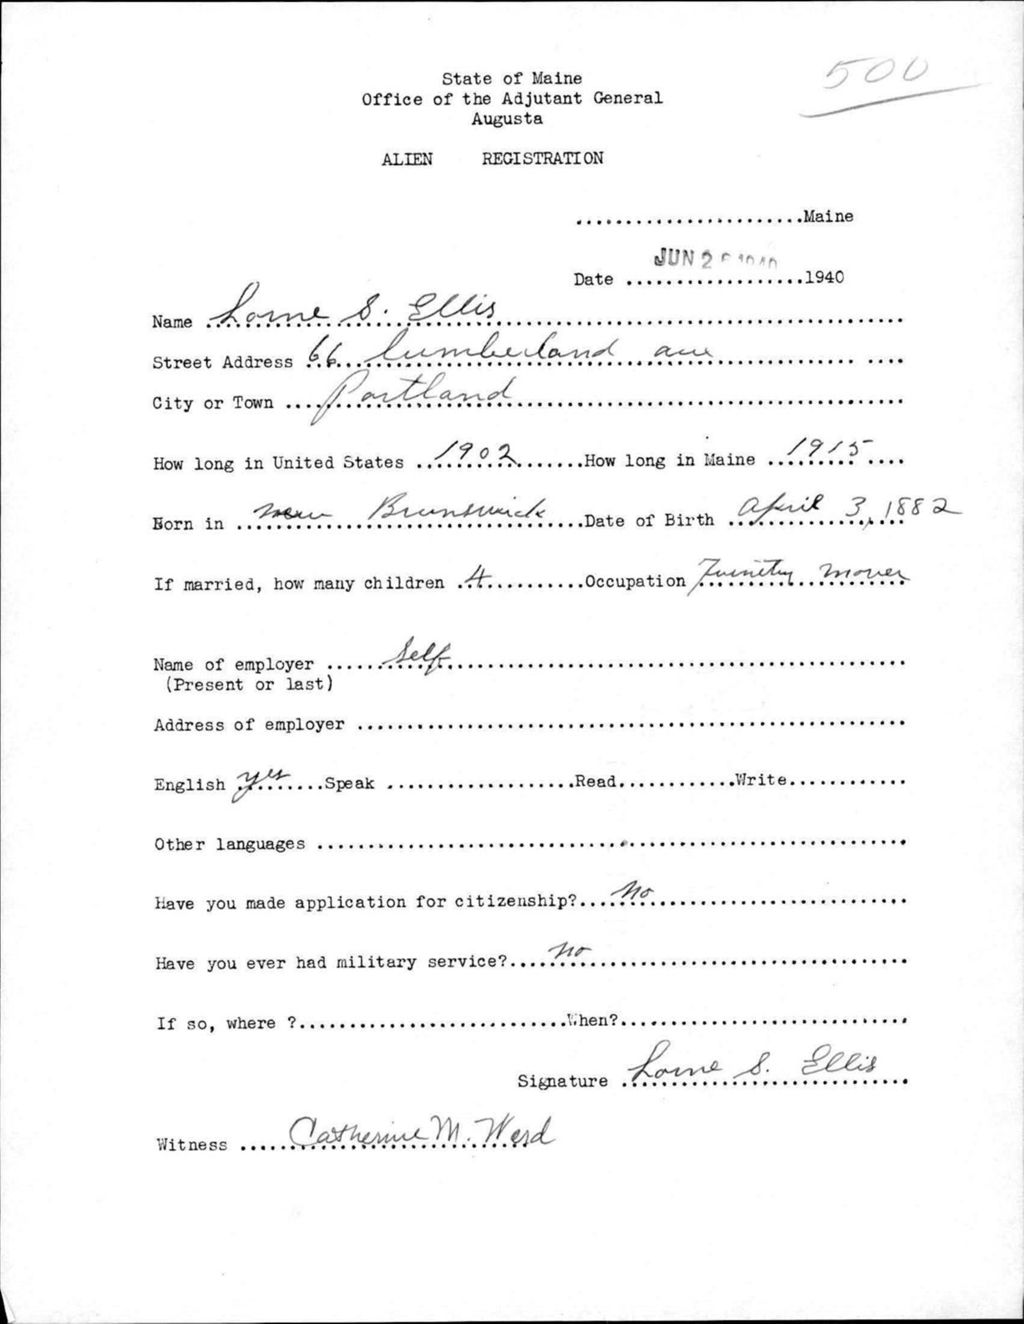 500
State of Maine
Office of the Adjutant General
Augusta
ALIEN REGISTRATION
.......................Maine
JUN 2 1940
Date ..................1940
Name Lorne S. Ellis
Street Address 66 Cumberland ave
City or Town Portland
How long in United States 1902 How long in Maine 1915
Born in New Brunswick Date of Birth April 3, 1882
If married, how many children 4 Occupation Furnitry mover
Name of employer Self
(Present or last)
Address of employer
English yes Speak Read Write
Other languages
Have you made application for citizenship? No
Have you ever had military service? no
If so, where ? When?
Signature Lorne S. Ellis
Witness Catherine M. Ward